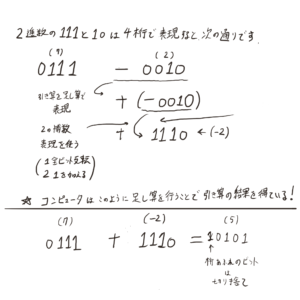 2進数の111と10は4桁で表現すると次の通りです.
(7) (2)
0111 - 0010
引き算を足し算で
表現
+ (-0010)
2の補数
表現を使う
+ 1110 ← (-2)
(全ビット反転
1を加える)
☆ コンピュータはこのように足し算を行うことで引き算の結果を得ている!
(7) (-2) (5)
0111 + 1110 = 10101
↑
桁あふれのビット
は
切り捨て